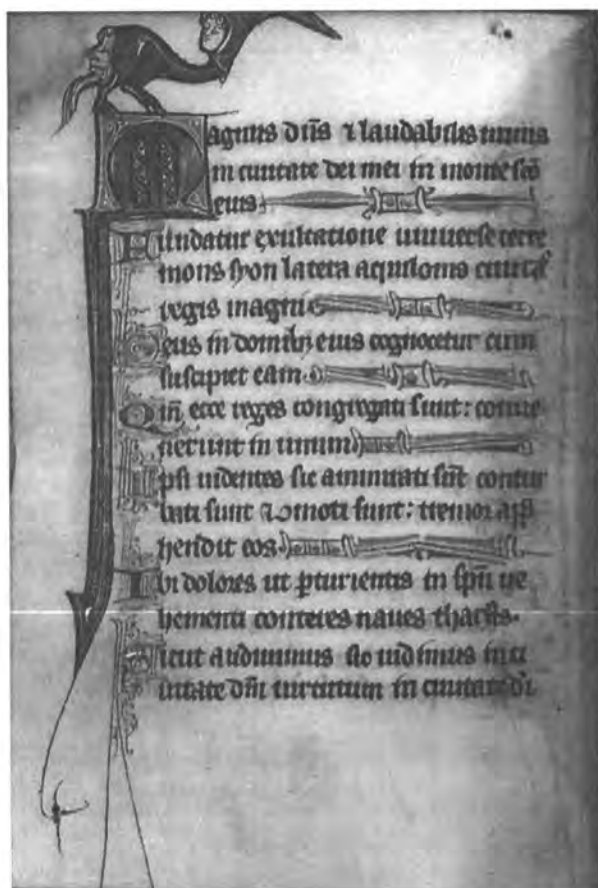 Magnus dñs ⁊ laudabilis nimis
in ciuitate dei mei in monte sco
eius
Fundatur exultatione uniuerse terre
mons syon latera aquilonis ciuitas
regis magni
Deus in domibus eius cognoscetur cum
suscipiet eam
Qm̃ ecce reges congregati sunt: conue
nerunt in unum
Ipsi uidentes sic ammirati sũt contur
bati sunt ⁊ cõmoti sunt: tremor app̃
hendit eos
Ibi dolores ut p̃turientis in sp̃u ue
hementi conteres naues tharsis.
Sicut audiuimus sic uidimus in ci
uitate dñi uirtutum in ciuitate di